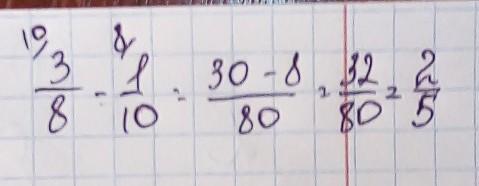 10 3/8 - 8 1/10 = (30 - 8)/80 = 32/80 = 2/5